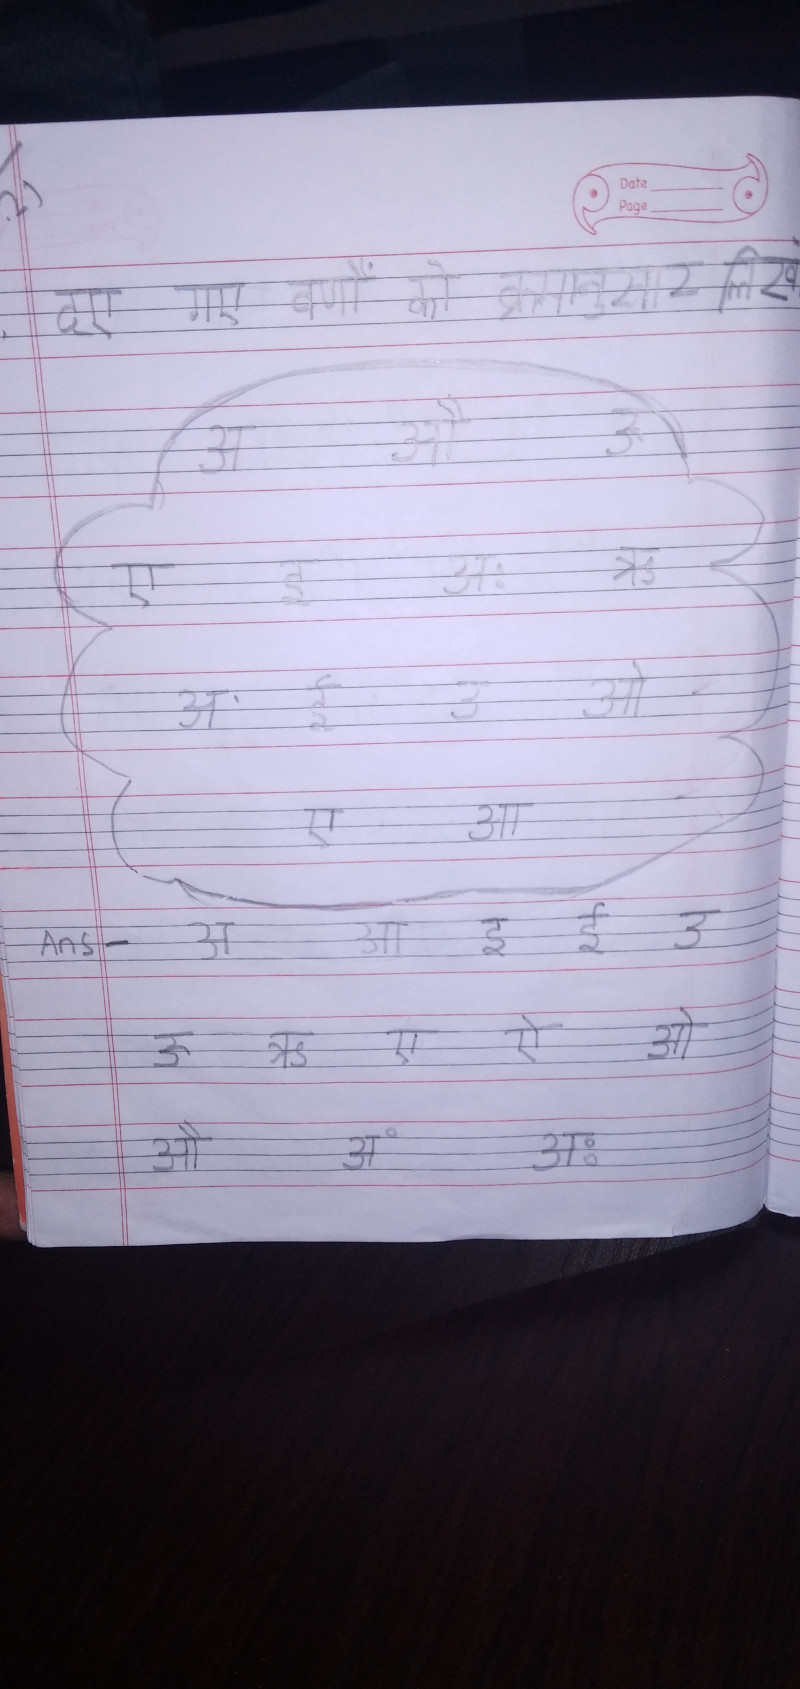 Date
Page
दिए गए वर्णों को क्रमानुसार लिखो
अ औ ऊ
ए इ अः ऋ
अं ई उ ओ
ए आ
Ans- अ आ इ ई उ
ऊ ऋ ए ऐ ओ
औ अं अः